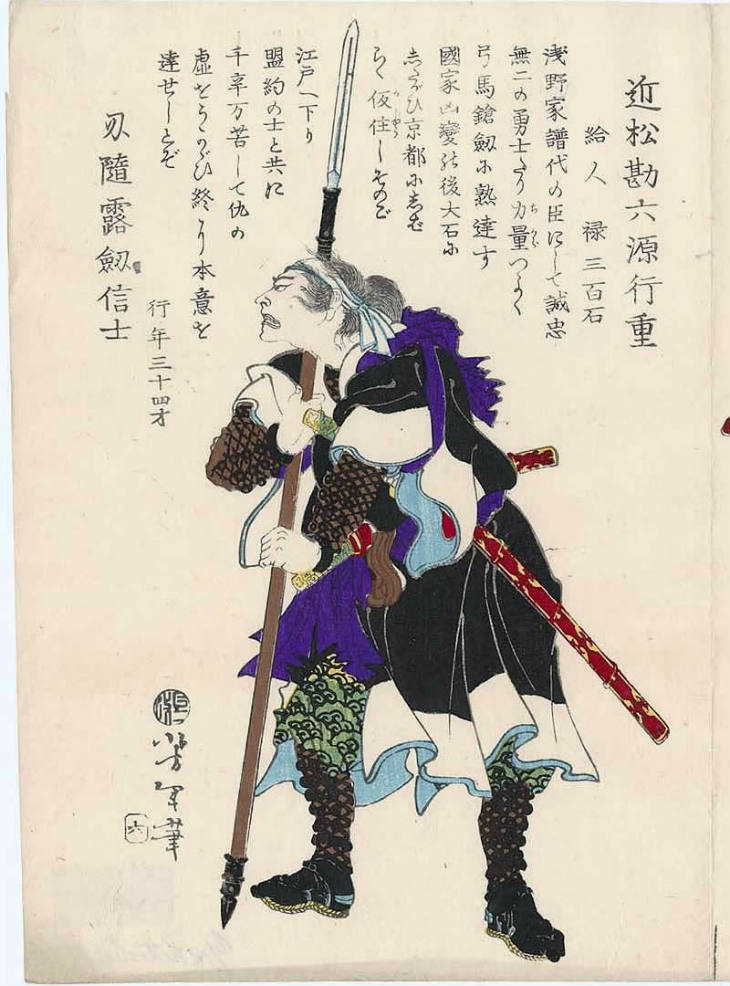 近松勘六源行重
給人 禄三百石
浅野家譜代の臣にして誠忠
無二の勇士たり力量つよく
弓馬鎗劔に熟達す
國家凶変の後大石に
したがひ京都にしば
らく仮住しそのご
江戸へ下り
盟約の士と共に
千辛万苦して仇の
虚をうかがひ終に本意を
達せしとぞ
刃隨露劔信士
行年三十四才
芳年筆
六